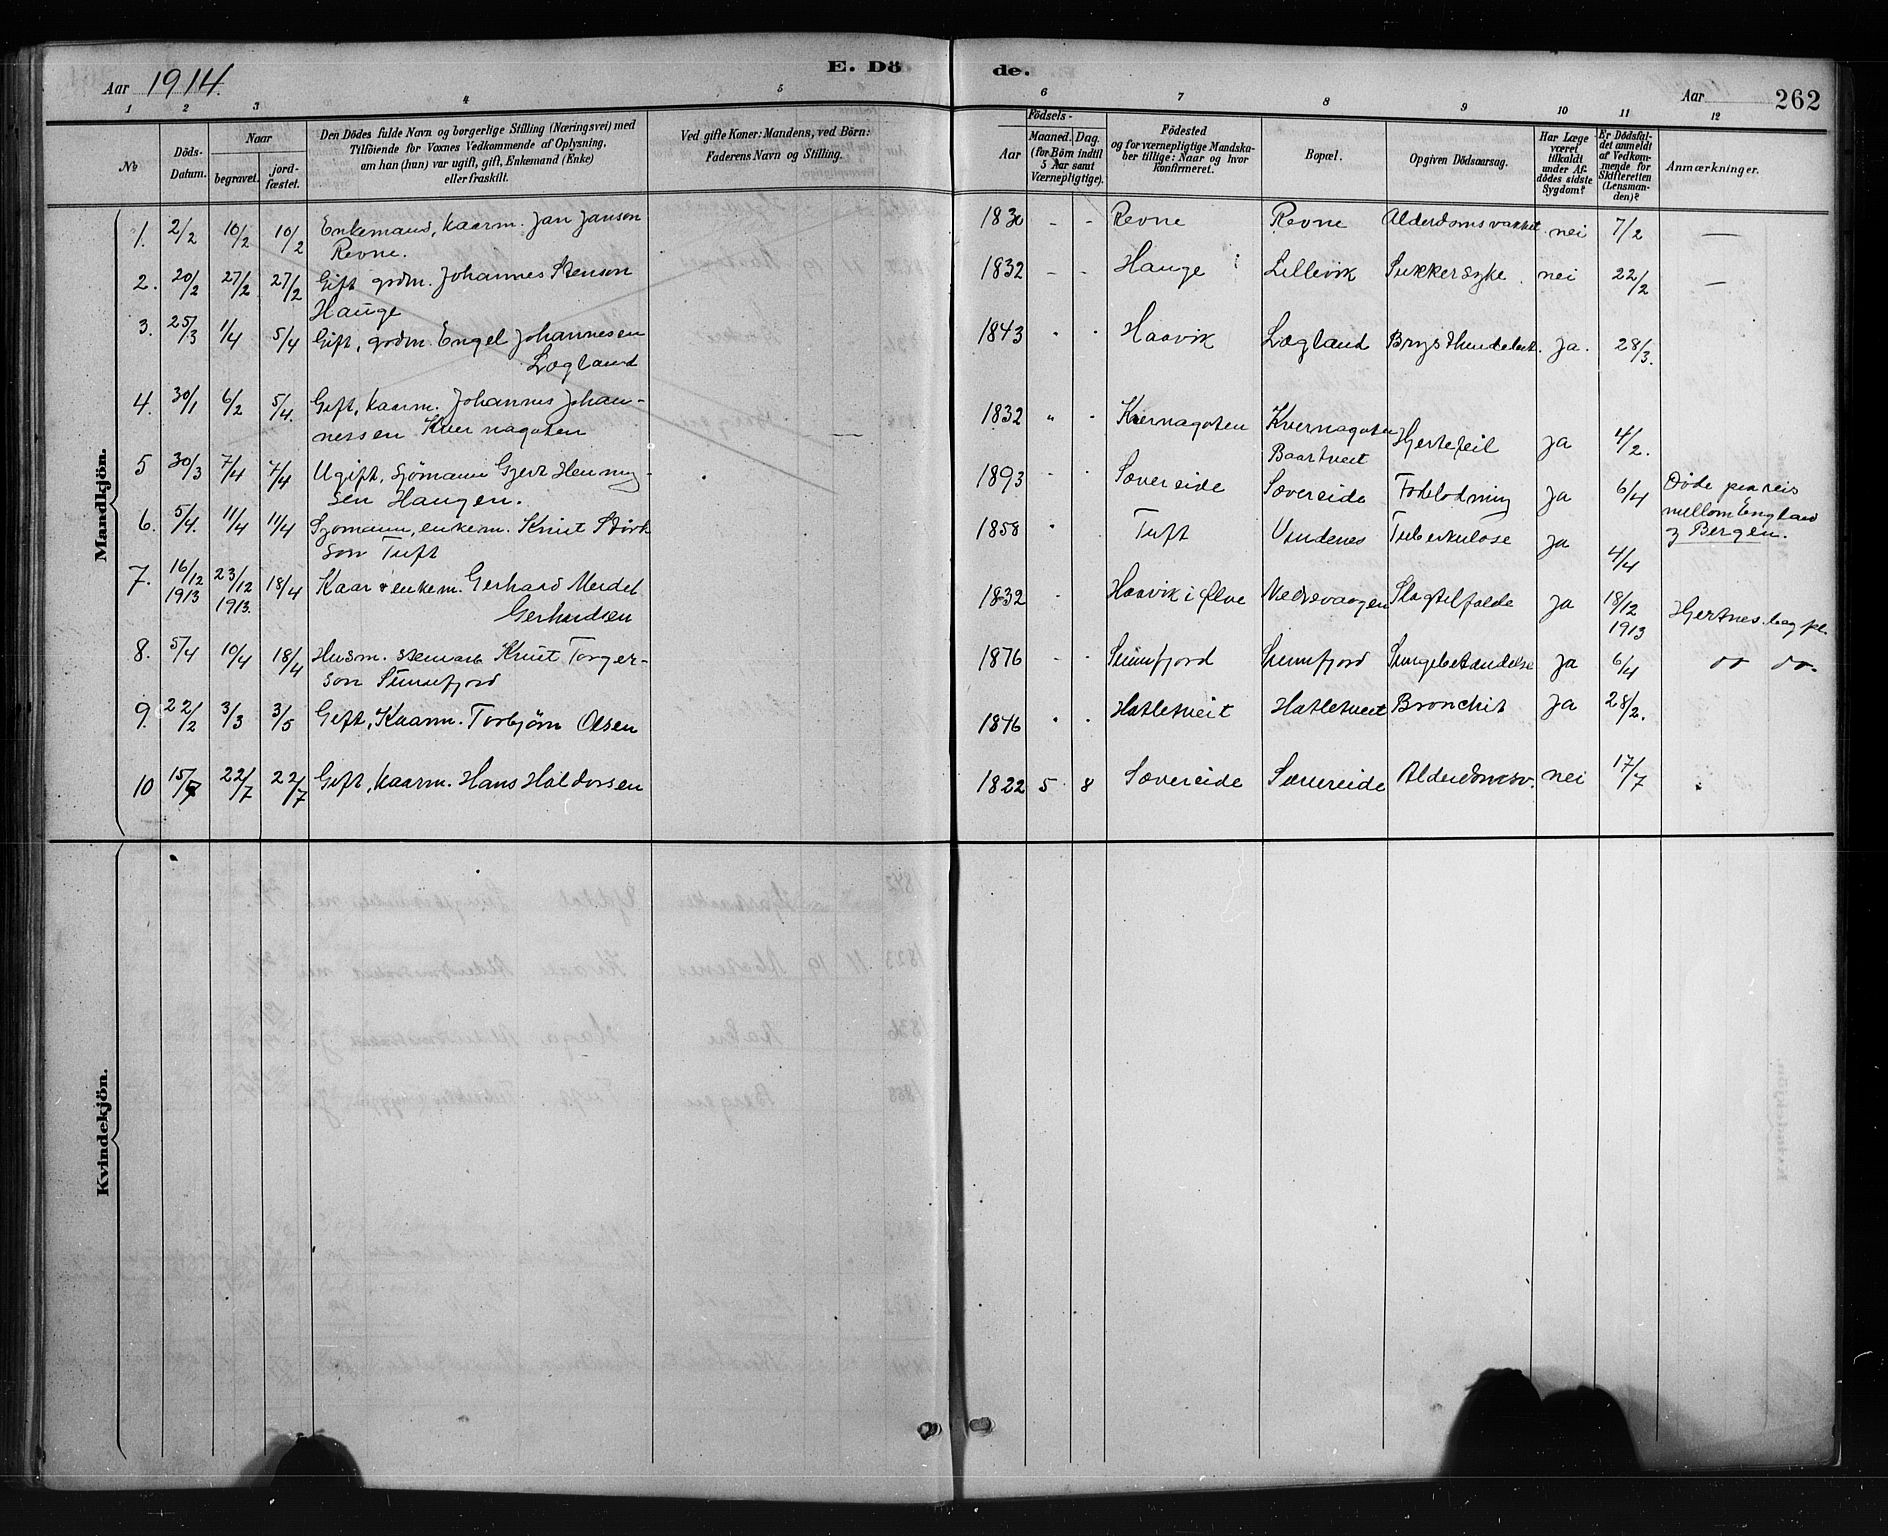 Aar 1914.
E. Dö
de.
Aar
262
1 2 3 4 5 6 7 8 9 10 11 12
No
Döds-Datum.
Naar
begravet.
jordfæstet.
Den Dödes fulde Navn og borgerlige Stilling (Næringsvei) med
Tilföiende for Voxnes Vedkommende af Oplysning,
om han (hun) var ugift, gift, Enkemand (Enke)
eller fraskilt.
Ved gifte Koner: Mandens, ved Börn:
Faderens Navn og Stilling.
Födsels-
Aar
Maaned. Dag.
(for Börn indtil
5 Aar samt
Værnepligtige).
Födested
og for værnepligtige Mandska-
ber tillige: Naar og hvor
konfirmeret.
Bopæl.
Opgiven Dödsaarsag.
Har Læge
været
tilkaldt
under Af-
dödes sidste
Sygdom?
Er Dödsfal-
det anmeldt
af Vedkom-
mende for
Skifteretten
(Lensman-
den)?
Anmærkninger.
Mandkjön.
1. 2/2 10/2 10/2 Enkemand, kaarm. Jan Janson
Revne.
1830 - - Revne Revne Alderdomsvakhet. nei 7/2 —
2. 20/2 27/2 27/2 Gift grdm. Johannes Stenson
Hauge
1832 - - Hauge Lillevik Sukkersyke. nei 22/2 —
3. 25/3 1/4 5/4 Gift, grdm. Engel Johannesen
Løgland
1843 " " Haavik Løgland ja. 28/3.
4. 30/1 6/2 5/4. Gift, kaarm. Johannes Johan-
nessen Kvernagoten
1832 " " Kvernagoten Kvernagoten
Baartveit Hjertefeil ja 4/2.
5 30/3 7/4 7/4 Ugift, sjömann Gjert Henning-
sen Haugen.
1893 - - Sævereide Sævereide ja 6/4 Døde paa reis
mellom England
og Bergen.
6. 5/4. 11/4 11/4 Sjømann, enkem. Knut Størk
son Tuft
1858 " Tuft Vindenes Tuberkulose ja 4/4
7. 16/12 1913 23/12 1913. 18/4 Kaar & enkem. Gerhard Meidel
Gerhardsen
1832 - Haavik i Ølve Vedsvaagen Slagtilfælde ja 18/12 1913
8. 5/4 10/4 18/4 Husm. stenarb Knut Torger-
son Sunnfjord
1876 - - Sunnfjord Sunnfjord Lungebetændelse ja 6/4 do do.
9. 22/2 3/3 3/5 Gift, Kaarm. Torbjørn Olsen
1846 " " Hatletveit Hatletveit Bronchit ja 28/2.
10 15/7 22/7 22/7 Gift, kaarm. Hans Haldorsen
1822 5 8 Sævereide Sævereide Alderdomsv. nei 17/7 "
Kvindekjön.